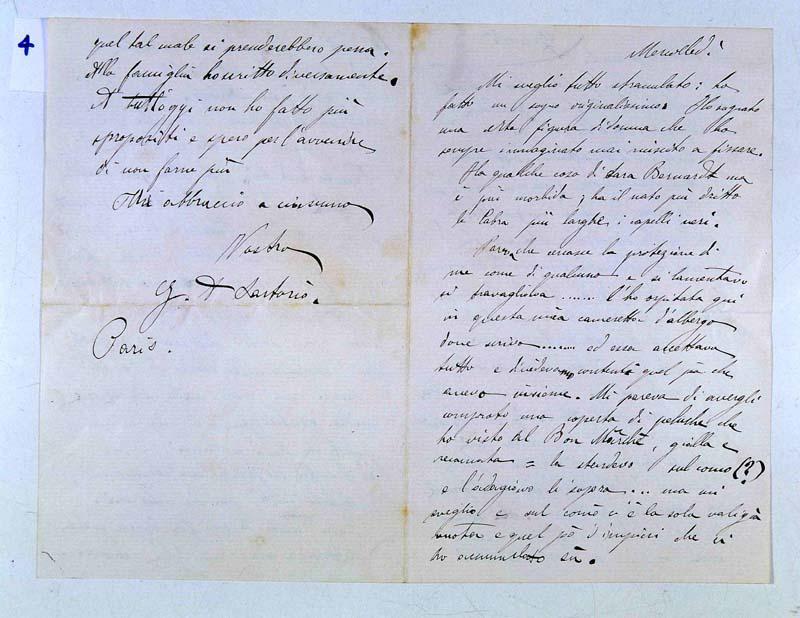 4
quel tal male si prenderebbero pena.
Alla famiglia ho scritto diversamente.
A tutt'oggi non ho fatto più
spropositi e spero per l'avvenire
di non farne più
Mi abbraccio a ciascuno
Vostro
G. A Sartorio.
Paris.
Mercoledì
Mi sveglio tutto stranulato; ho
fatto un sogno originalissimo. Ho sognato
una certa figura di donna che ho
sempre immaginato mai riuscito a fissare.
Ha qualche cosa di Sara Bernardt ma
è più morbida; ha il naso più diritto
le labra più larghe, i capelli neri.
Parea che avesse la protezione di
me come di qualcuno e si lamentava
si travagliava ...... l'ho ospitata quì
in questa mia cameretta d'albergo
dove scrivo ........ ed essa accettava
tutto e dividevamo contenti quel po che
avevo insieme. Mi pareva di avergli
comprato una coperta di peluche che
ho visto al Bon Marchè, gialla e
recamata = la stendevo sul comò (?)
e l'adagiavo lì sopra .... ma mi
sveglio e sul comò v'è la sola valigia
vuota e quel pò d'impicci che vi
ho accumulato su.